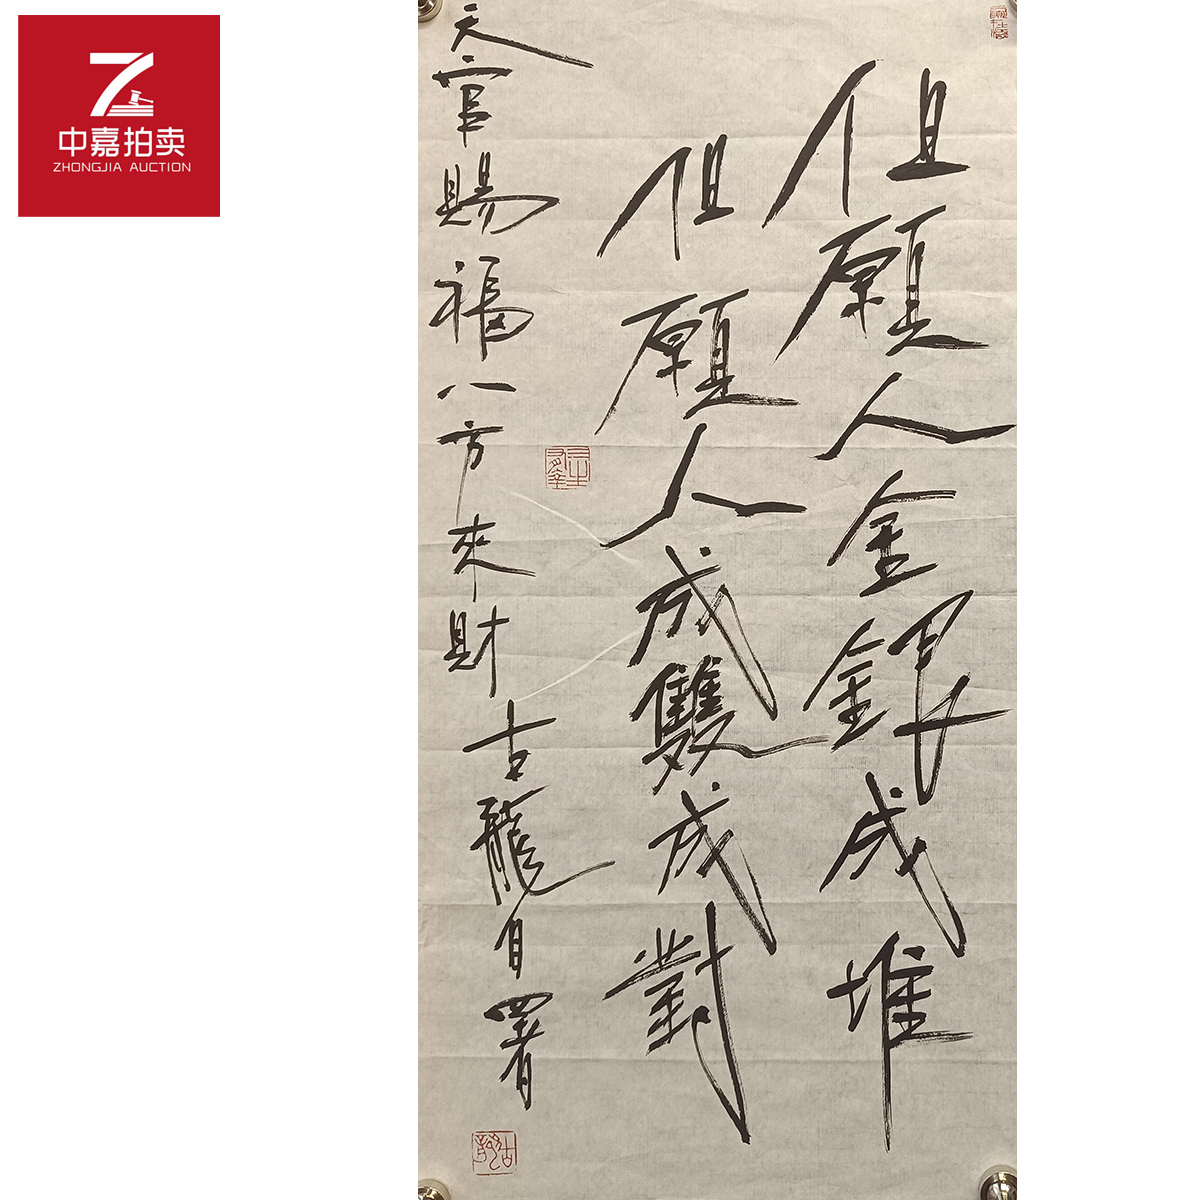 中嘉拍卖
ZHONGJIA AUCTION
但願人金銀成堆
但願人成雙成對
天官賜福八方來財古龍自署
古龍